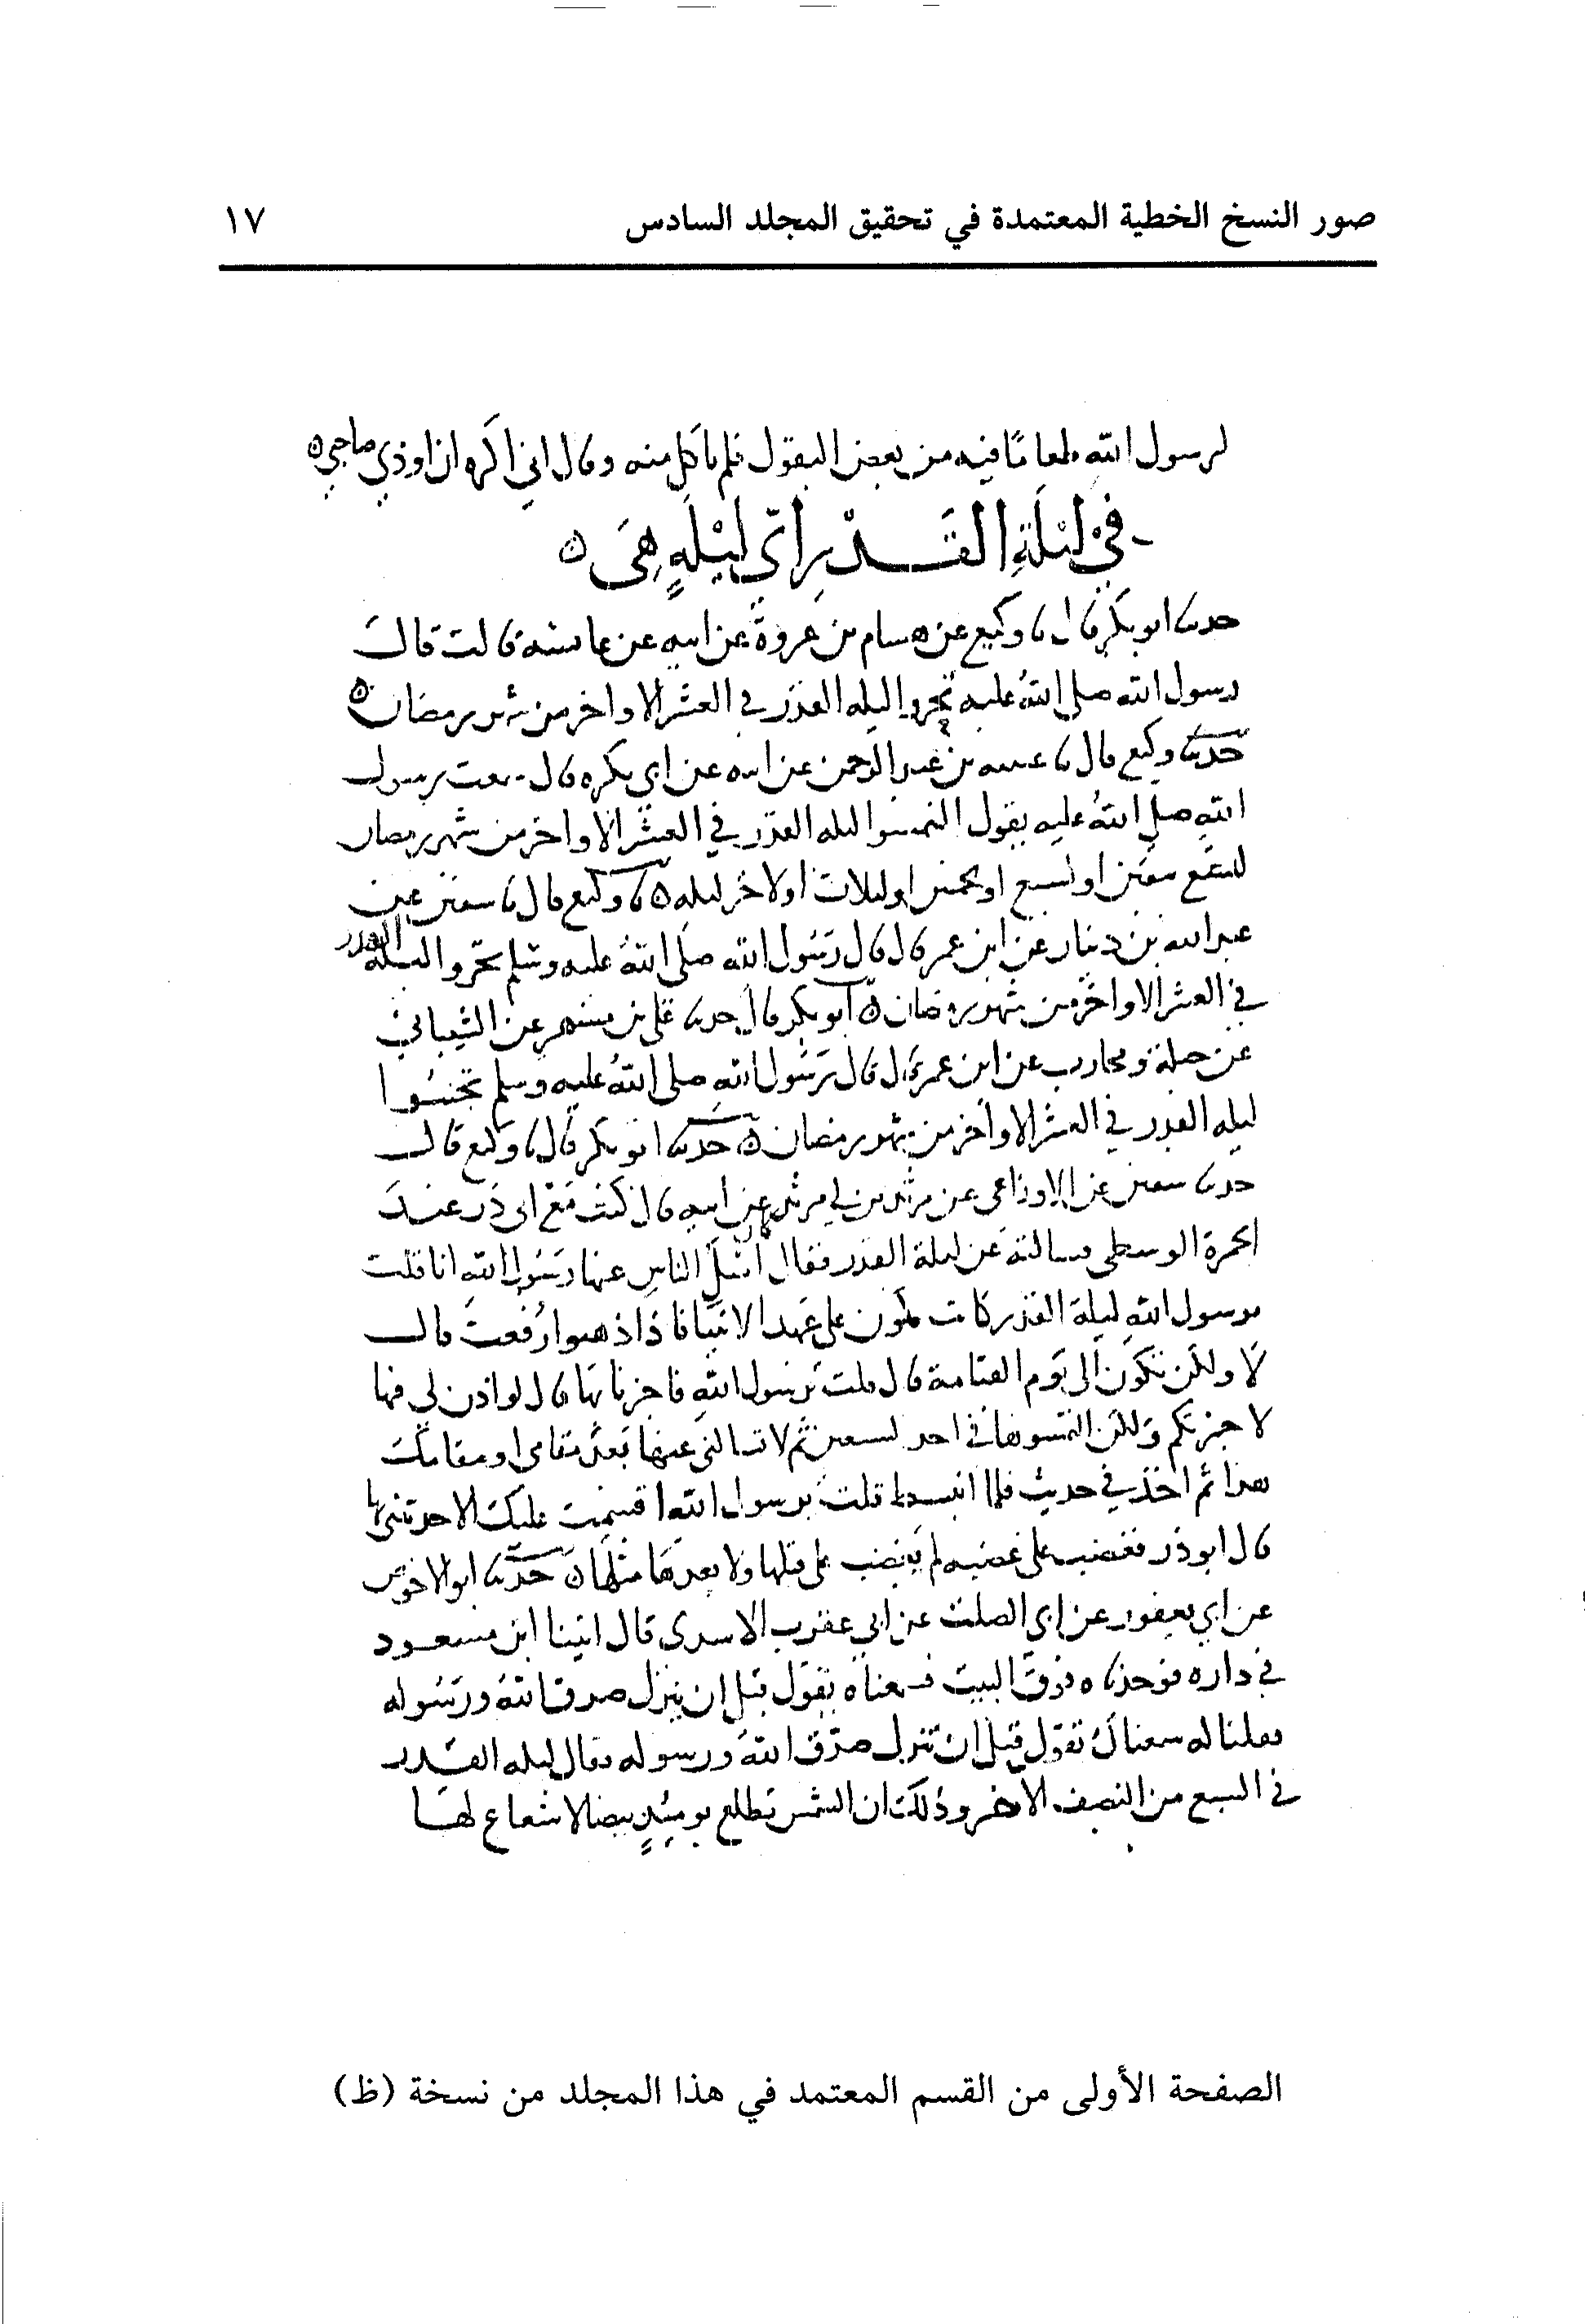 صور النسخ الخطية المعتمدة في تحقيق المجلد السادس ١٧
لرسول الله طعاما فيه من بعض البقول فلم ياكل منه وقال اني اكره ان اوذي صاحبي ه
في ليلة القدر اي ليلة هي ه
حدثنا ابو بكر قال نا وكيع عن هشام بن عروة عن ابيه عن عائشة قالت قال
رسول الله صلى الله عليه تحروا ليله القدر في العشر الاواخر من شهر رمضان ه
حدثنا وكيع قال نا عيينه بن عبد الرحمن عن ابيه عن ابي بكره قال سمعت رسول
الله صلى الله عليه يقول التمسوا ليله القدر في العشر الاواخر من شهر رمضان
لتسع بقين او لسبع او لخمس او لثلاث او لاخر ليله ه نا وكيع قال نا سفين عن
عبد الله بن دينار عن ابن عمر قال قال رسول الله صلى الله عليه وسلم تحروا ليلة القدر
في العشر الاواخر من شهر رمضان ه ابو بكر قال حدثنا علي بن مسهر عن الشيباني
عن جبلة ومحارب عن ابن عمر قال قال رسول الله صلى الله عليه وسلم تحينوا
ليله القدر في العشر الاواخر من شهر رمضان ه حدثنا ابو بكر قال نا وكيع قال
حدثنا سفين عن الاوزاعي عن مرثد بن ابي مرثد عن ابيه قال كنت مع ابي ذر عند
الجمرة الوسطى فسالته عن ليلة القدر فقال كان اسال الناس عنها رسول الله انا قلت
يرسول الله ليلة القدر كانت تكون على عهد الانبيا فاذا ذهبوا رفعت قال
لا ولكن تكون الى يوم القيامة قال قلت يرسول الله فاخبرنا بها قال لو اذن لي فيها
لاخبرتكم ولكن التمسوها في احد السبعين ثم لا تسالني عنها بعد مقامي او مقامك
هذا ثم اخذ في حديث فلما انبسط قلت يرسول الله اقسمت عليك الا حدثتني بها
قال ابو ذر فغضب علي غضبه لم يغضب علي قبلها ولا بعدها مثلها ه حدثنا ابو الاحوص
عن ابي يعفور عن ابي الصلت عن ابي عقرب الاسدي قال اتينا ابن مسعود
في داره فوجدناه فوق البيت فسمعناه يقول قبل ان ينزل صدق الله ورسوله
فقلنا له سمعناك تقول قبل ان تنزل صدق الله ورسوله فقال ليله القدر
في السبع من النصف الاخر وذلك ان الشمس تطلع يومئذ بيضا لا شعاع لها
الصفحة الأولى من القسم المعتمد في هذا المجلد من نسخة (ظ)